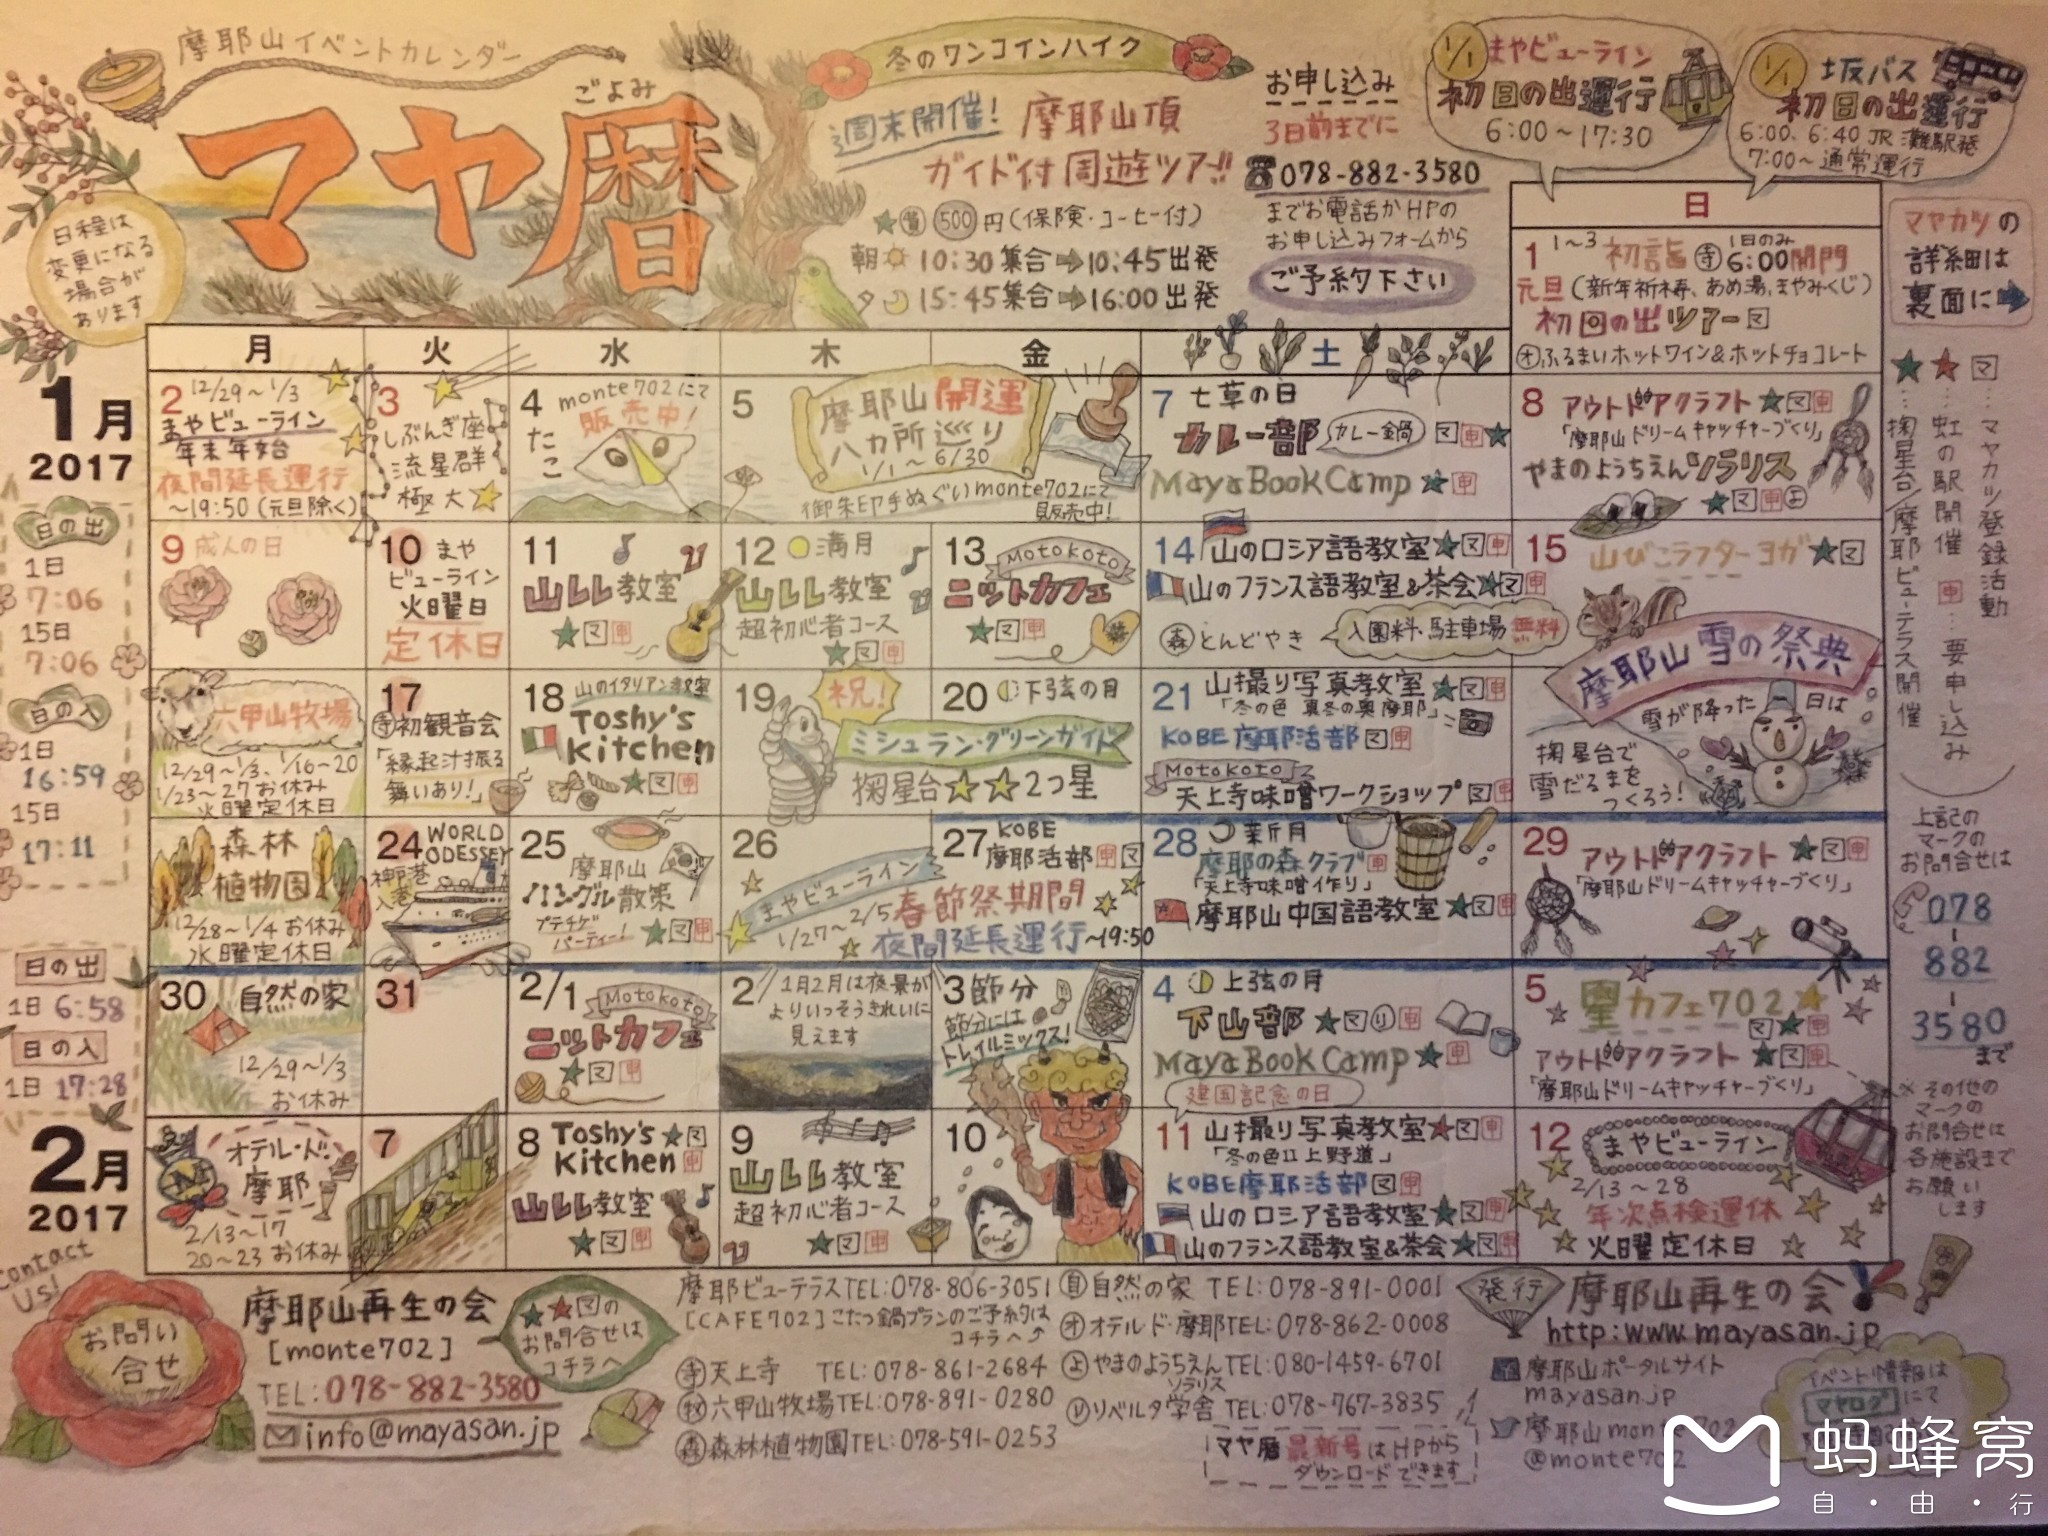 摩耶山イベントカレンダー
マヤ暦
ごよみ
日程は
変更になる
場合が
あります
冬のワンコインハイク
週末開催!
摩耶山頂
ガイド付周遊ツアー!!
★賞500円(保険・コーヒー付)
朝 10:30集合→10:45出発
夕 15:45集合→16:00出発
お申し込み
3日前までに
☎078-882-3580
までお電話かHPの
お申し込みフォームから
ご予約下さい
1/1 まやビューライン
初日の出運行
6:00~17:30
1/1 坂バス
初日の出運行
6:00、6:40 JR灘駅発
7:00~通常運行
マヤカツの
詳細は
裏面に
日
1 1~3 初詣 寺 1日のみ 6:00開門
元旦(新年祈祷、あめ湯、まやみくじ)
初回の出ツアー マ
オふるまいホットワイン&ホットチョコレート
月 火 水 木 金 土
1月
2017
2 12/29~1/3
まやビューライン
年末年始
夜間延長運行
~19:50(元旦除く)
3
しぶんぎ座
流星群
極大
4 monte702にて
販売中!
たこ
5
摩耶山開運
八ヵ所巡り
1/1~6/30
御朱印手ぬぐいmonte702にて
販売中!
7 七草の日
カレー部 カレー鍋 マ申★
MayaBookCamp ★申
8 アウトドアクラフト★マ申
「摩耶山ドリームキャッチャーづくり」
やまのようちえんソラリス
★マ申よ
9 成人の日
10 まや
ビューライン
火曜日
定休日
11
山レレ教室
★マ申
12 満月
山レレ教室
超初心者コース
★マ申
13 Motokoto
ニットカフェ
★マ申
14 山のロシア語教室★マ申
山のフランス語教室&茶会★マ申
森とんどやき 入園料・駐車場無料
15 山びこラフターヨガ★マ
摩耶山雪の祭典
雪が降った日は
掬星台で
雪だるまを
つくろう!
六甲山牧場
12/29~1/3、1/16~20
1/23~27お休み
火曜定休日
17
寺初観音会
「縁起汁振る
舞いあり!」
18 山のイタリアン教室
Toshy's
Kitchen
★マ申
19 祝!
20 下弦の月
ミシュラン・グリーンガイド
掬星台★★2つ星
21 山撮り写真教室★マ申
「冬の色 真冬の奥摩耶」
KOBE摩耶活部マ申
Motokoto
天上寺味噌ワークショップマ申
森林
植物園
12/28~1/4お休み
水曜定休日
24 WORLD
ODESSEY
神戸港
入港
25
摩耶山
ハングル散策
プチチゲ
パーティー!
★マ申
26
まやビューライン
1/27~2/5春節祭期間
夜間延長運行~19:50
27 KOBE
摩耶活部申マ
28 新月
摩耶の森クラブ申
「天上寺味噌作り」
摩耶山中国語教室★マ申
29 アウトドアクラフト★マ申
「摩耶山ドリームキャッチャーづくり」
30 自然の家
12/29~1/3
お休み
31
2/1 Motokoto
ニットカフェ
★マ申
2 1月2月は夜景が
よりいっそうきれいに
見えます
3 節分
節分には
トレイルミックス!
4 上弦の月
下山部★マり申
MayaBookCamp★申
建国記念の日
5 星カフェ702
マ★申
アウトドアクラフト★マ申
「摩耶山ドリームキャッチャーづくり」
2月
2017
オテル・ド・
摩耶
2/13~17
20~23お休み
7
8 Toshy's★マ
Kitchen申
山レレ教室
★マ申
9
山レレ教室
超初心者コース
★マ申
10
11 山撮り写真教室★マ申
「冬の色II上野道」
KOBE摩耶活部マ申
山のロシア語教室★マ申
山のフランス語教室&茶会★マ申
12 まやビューライン
2/13~28
年次点検運休
火曜定休日
日の出
1日
7:06
15日
7:06
日の入
1日
16:59
15日
17:11
日の出
1日 6:58
日の入
1日 17:28
マ…マヤカツ登録活動
★…虹の駅開催 申…要申し込み
★…掬星台/摩耶ビューテラス開催
上記の
マークの
お問合せは
078
-
882
-
3580
まで
※その他の
マークの
お問合せは
各施設まで
お願い
します
Contact
Us!
お問い
合せ
摩耶山再生の会
[monte702]
TEL:078-882-3580
info@mayasan.jp
★★マの
お問合せは
コチラへ
摩耶ビューテラスTEL:078-806-3051
[CAFE702]こたつ鍋プランのご予約は
コチラへ
寺天上寺 TEL:078-861-2684
牧六甲山牧場TEL:078-891-0280
森森林植物園TEL:078-591-0253
自自然の家 TEL:078-891-0001
オオテルド・摩耶TEL:078-862-0008
よやまのようちえんTEL:080-1459-6701
ソラリス
リリベルタ学舎 TEL:078-767-3835
マヤ暦最新号はHPから
ダウンロードできます
発行
摩耶山再生の会
http:www.mayasan.jp
摩耶山ポータルサイト
mayasan.jp
摩耶山monte702
@monte702
イベント情報は
マヤログにて
蚂蜂窝
自·由·行